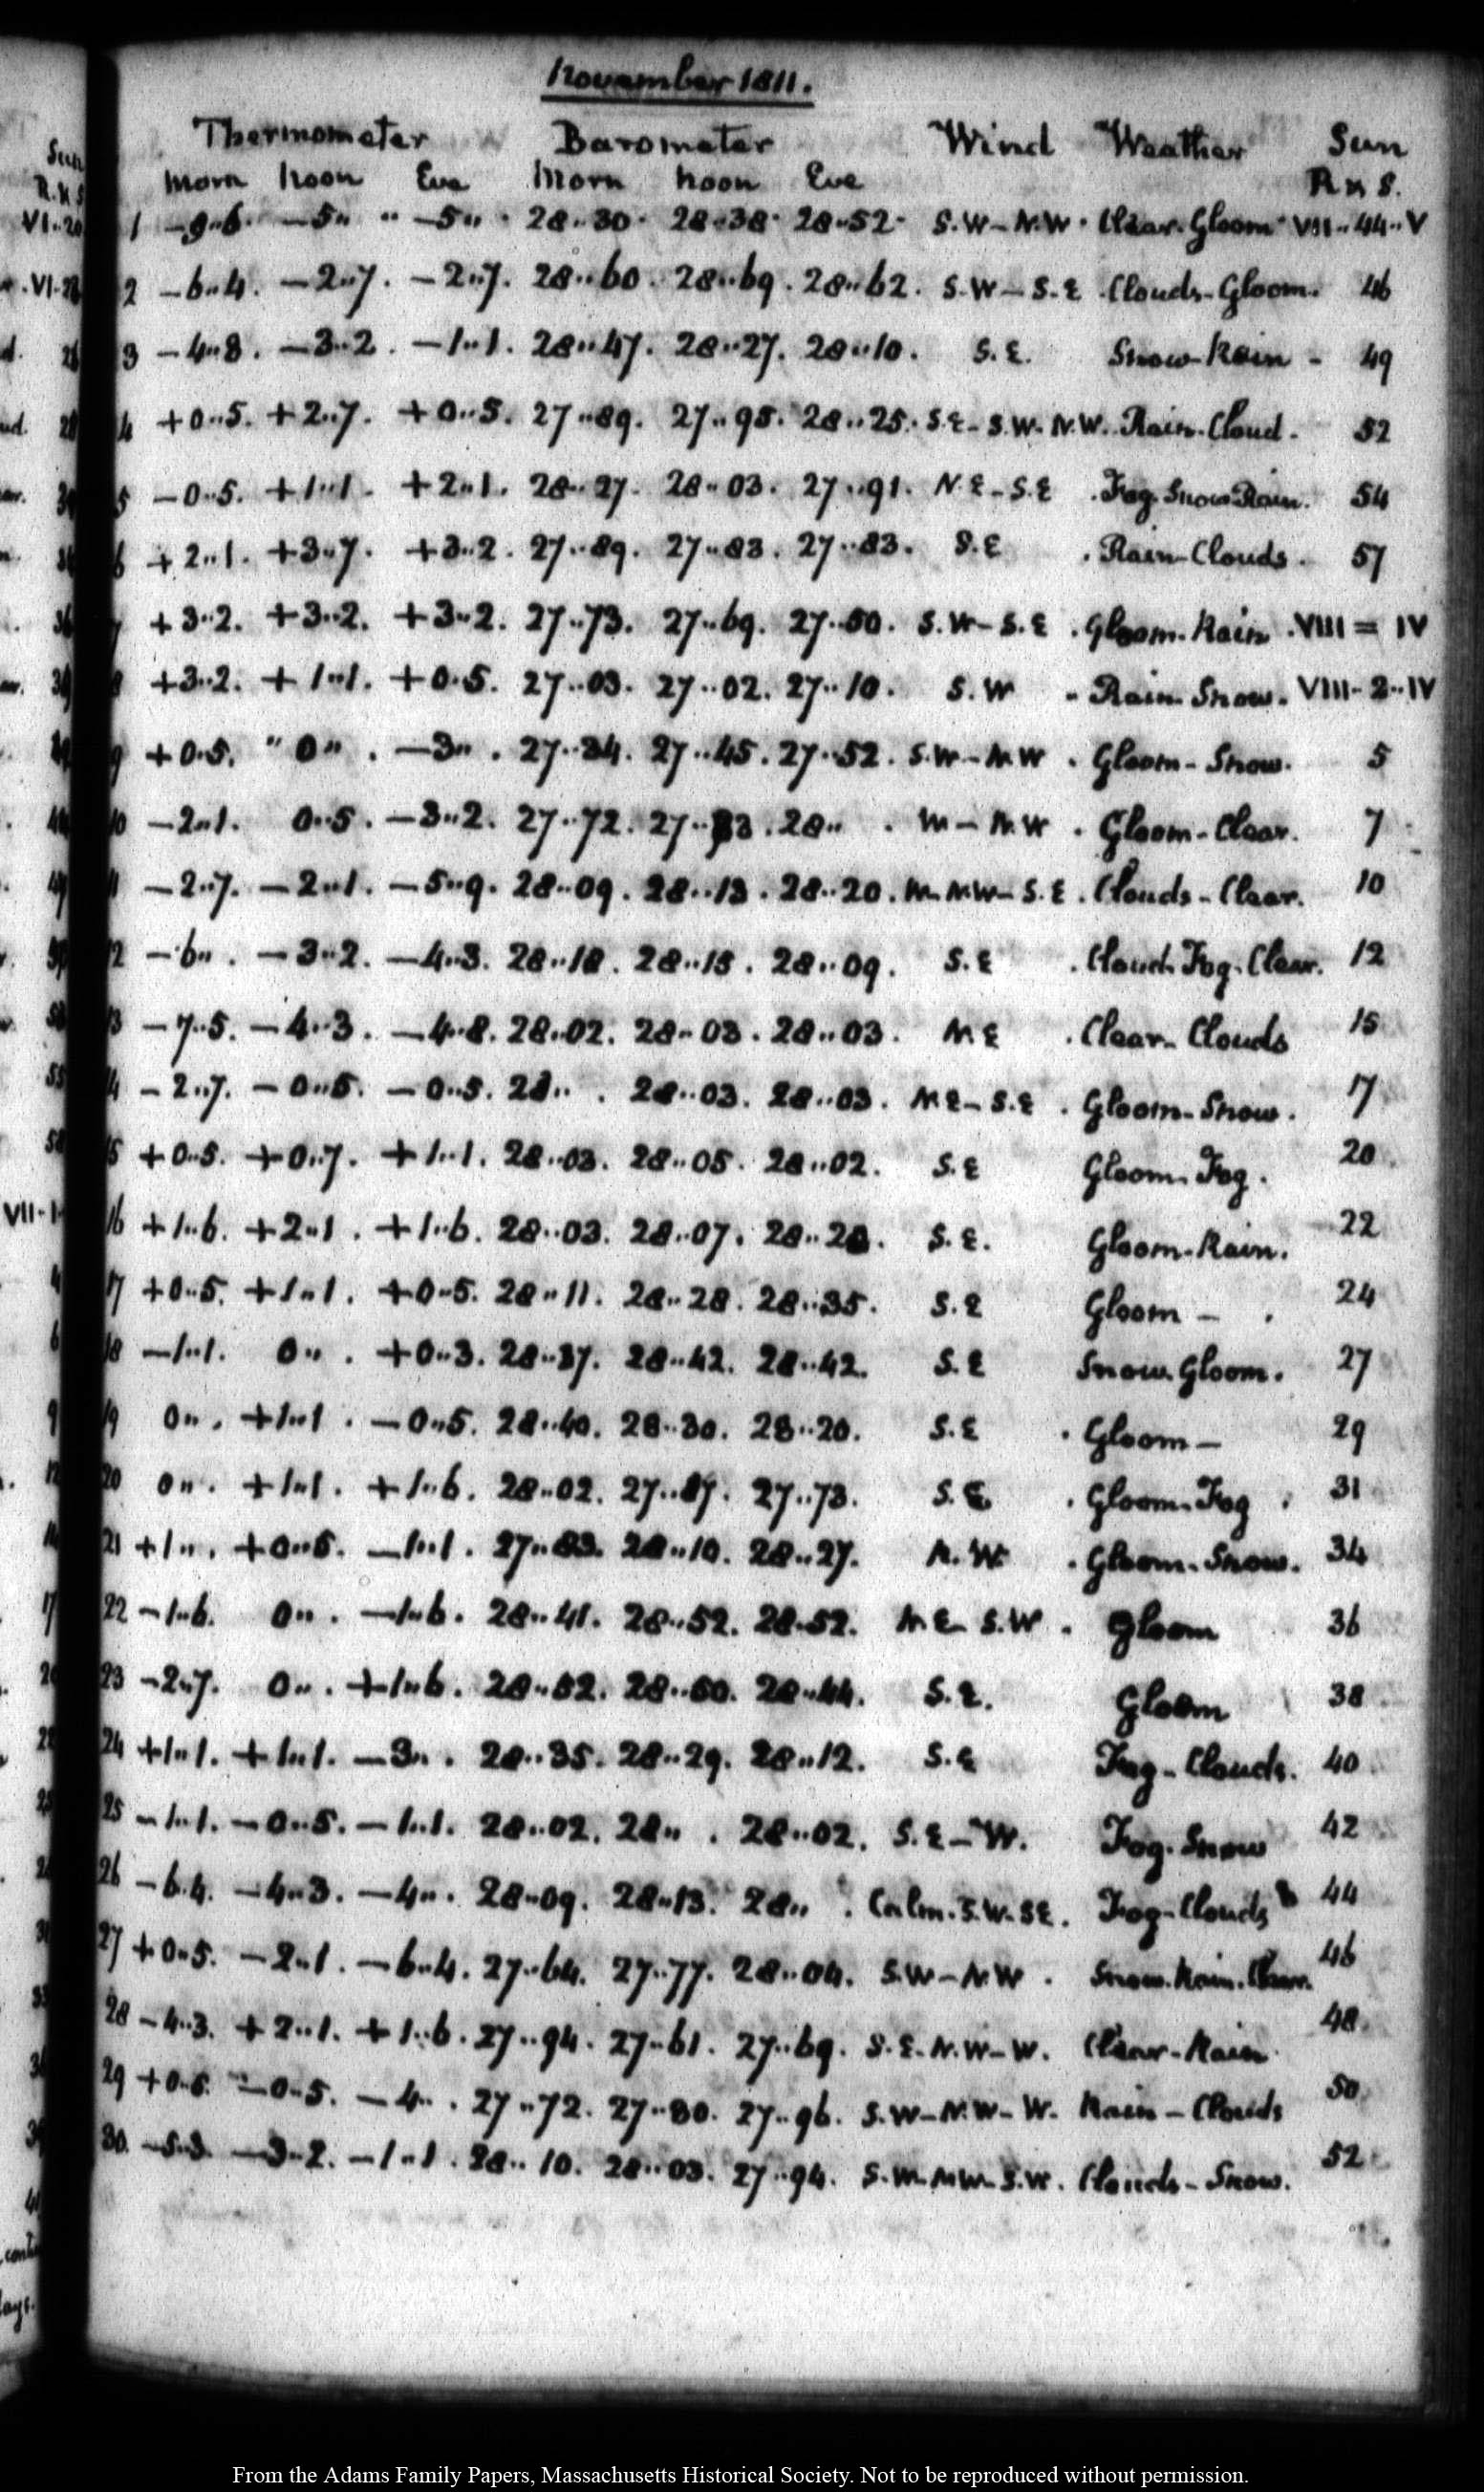 November 1811.
Thermometer Barometer Wind Weather Sun
Morn Noon Eve Morn Noon Eve R n S.
1 -9..6. -5.. " -5.. . 28..30. 28..38. 28..52. S.W-N.W. Clear. Gloom. VII..44..V
2 -6..4. -2..7. -2..7. 28..60. 28..69. 28..62. S.W-S.E. Clouds-Gloom. 46
3 -4..8. -3..2. -1..1. 28..47. 28..27. 28..10. S.E. Snow-Rain - 49
4 +0..5. +2..7. +0..5. 27..89. 27..95. 28..25. S.E-S.W-N.W. Rain-Cloud. 52
5 -0..5. +1..1. +2..1. 28..27. 28..03. 27..91. N.E-S.E. Fog. Snow Rain. 54
6 +2..1. +3..7. +3..2. 27..89. 27..83. 27..83. S.E. Rain-Clouds. 57
7 +3..2. +3..2. +3..2. 27..73. 27..69. 27..50. S.W-S.E. Gloom-Rain. VIII = IV
8 +3..2. +1..1. +0..5. 27..03. 27..02. 27..10. S.W. Rain-Snow. VIII-2..IV
9 +0..5. " 0.. . -3.. . 27..34. 27..45. 27..52. S.W-N.W. Gloom-Snow. 5
10 -2..1. 0..5. -3..2. 27..72. 27..83. 28.. . W-N.W. Gloom-Clear. 7
11 -2..7. -2..1. -5..9. 28..09. 28..13. 28..20. W-NW-S.E. Clouds-Clear. 10
12 -6.. . -3..2. -4..3. 28..18. 28..15. 28..09. S.E. Cloud. Fog. Clear. 12
13 -7..5. -4..3. -4..8. 28..02. 28..03. 28..03. NE. Clear-Clouds 15
14 -2..7. -0..5. -0..5. 28.. . 28..03. 28..03. NE-S.E. Gloom-Snow. 17
15 +0..5. +0..7. +1..1. 28..03. 28..05. 28..02. S.E Gloom. Fog. 20
16 +1..6. +2..1. +1..6. 28..03. 28..07. 28..28. S.E. Gloom-Rain. 22
17 +0..5. +1..1. +0..5. 28..11. 28..28. 28..35. S.E Gloom - . 24
18 -1..1. 0.. . +0..3. 28..37. 28..42. 28..42. S.E Snow. Gloom. 27
19 0.. . +1..1. -0..5. 28..40. 28..30. 28..20. S.E. Gloom- 29
20 0.. . +1..1. +1..6. 28..02. 27..87. 27..73. S.E. Gloom-Fog. 31
21 +1.. . +0..5. -1..1. 27..83. 28..10. 28..27. N.W. Gloom-Snow. 34
22 -1..6. 0.. . -1..6. 28..41. 28..52. 28..52. N.E-S.W. Gloom 36
23 -2..7. 0.. . +1..6. 28..52. 28..50. 28..44. S.E. Gloom 38
24 +1..1. +1..1. -3.. . 28..35. 28..29. 28..12. S.E Fog-Clouds. 40
25 -1..1. -0..5. -1..1. 28..02. 28.. . 28..02. S.E-W. Fog-Snow 42
26 -6..4. -4..3. -4.. . 28..09. 28..13. 28.. . Calm. S.W-SE. Fog-Clouds 44
27 +0..5. -2..1. -6..4. 27..64. 27..77. 28..04. S.W-N.W. Snow. Rain. Clear. 46
28 -4..3. +2..1. +1..6. 27..94. 27..61. 27..69. S.E-N.W-W. Clear-Rain. 48.
29 +0..5. -0..5. -4.. . 27..72. 27..80. 27..96. S.W-N.W-W. Rain-Clouds 50
30. -5..3. -3..2. -1..1. 28..10. 28..03. 27..94. S.W-NW-S.W. Clouds-Snow. 52
From the Adams Family Papers, Massachusetts Historical Society. Not to be reproduced without permission.